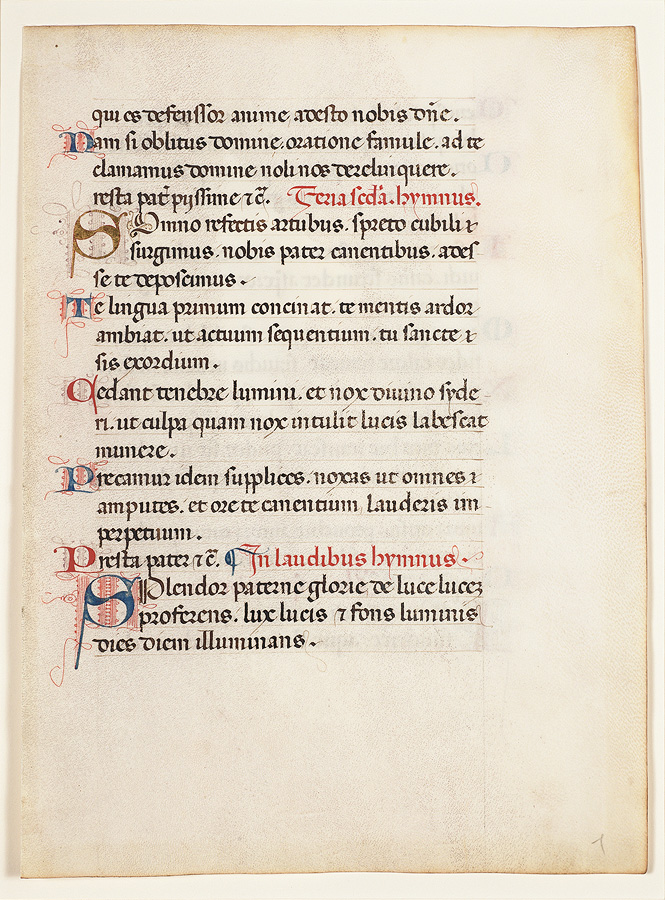 qui es defenssor anime, adesto nobis dñe.
Nam si oblitus domine. oratione famule. ad te
clamamus domine noli nos derelinquere.
resta pat̃r pyssime ⁊ c̃. Feria scďa. hymnus.
Somno refectis artubus. spreto cubili ⁊
surgimus. nobis pater canentibus. ades
se te deposcimus.
Te lingua primum concinat. te mentis ardor
ambiat. ut actuum sequentium. tu sancte ⁊
sis exordium.
Cedant tenebre lumini. et nox diuino syde
ri. ut culpa quam nox intulit lucis labescat
munere.
Precamur idem supplices. noxas ut omnes ⁊
amputes. et ore te canentium lauderis im
perpetuum.
Presta pater ⁊ c̃. ¶ In laudibus hymnus.
SPlendor paterne glorie de luce lucez
proferens. lux lucis ⁊ fons luminis
dies diem illuminans.